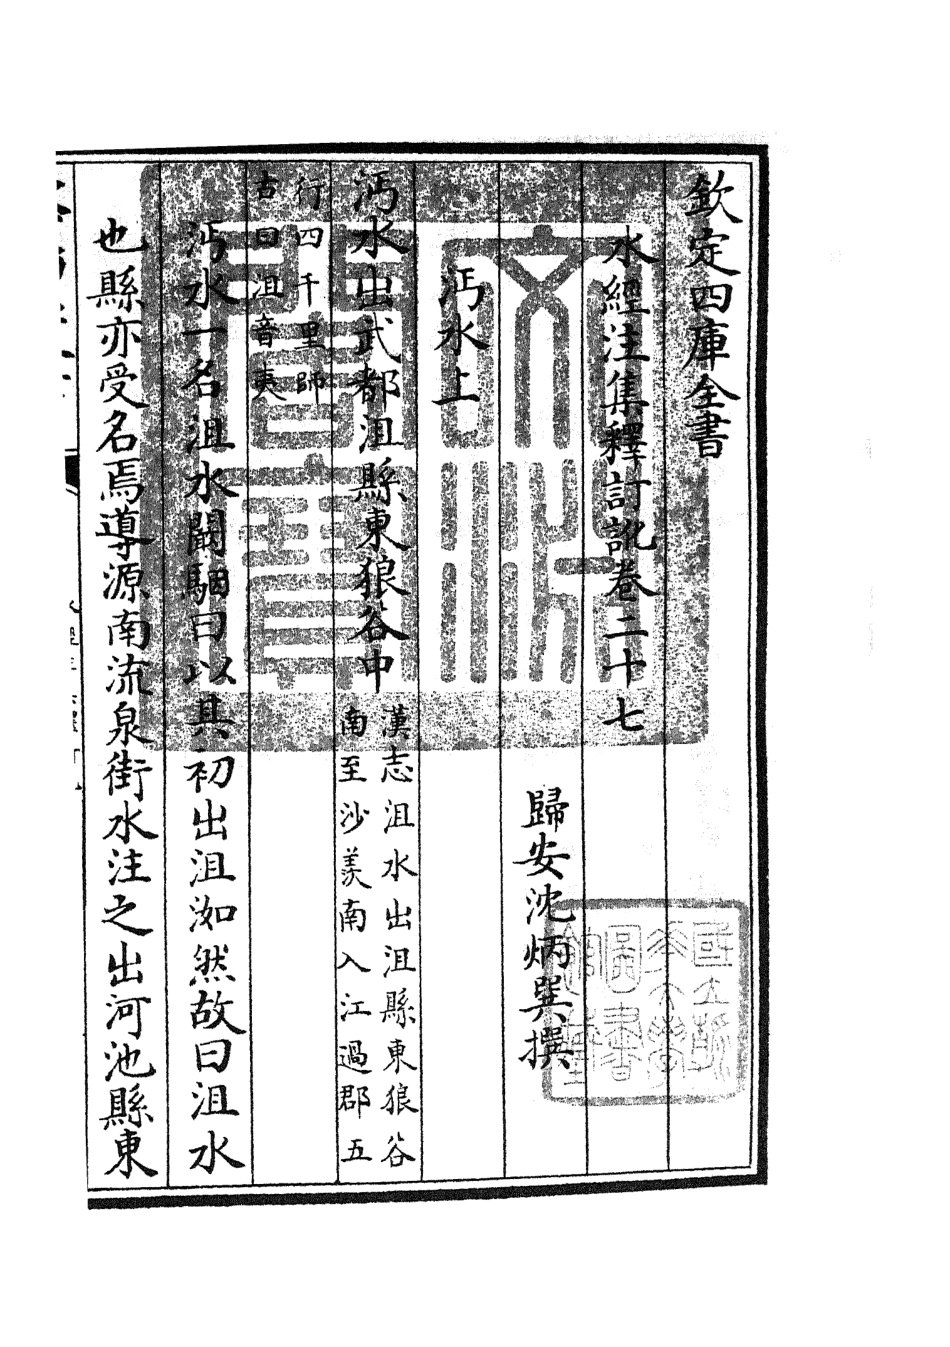 欽定四庫全書
水經注集釋訂訛卷二十七
歸安沈炳巽撰
沔水上
沔水出武都沮縣東狼谷中
漢志沮水出沮縣東狼谷
南至沙羨南入江過郡五
行四千里師
古曰沮音夷
沔水一名沮水闞駰曰以其初出沮洳然故曰沮水
也縣亦受名焉導源南流泉街水注之出河池縣東